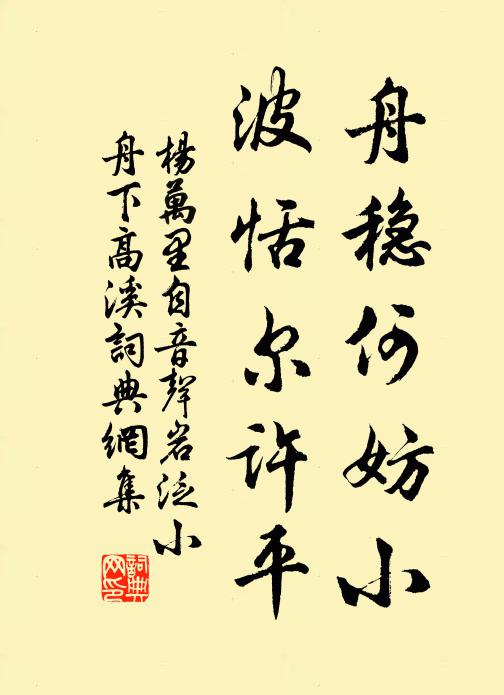 舟稳何妨小
波恬尔许平
楊萬里自音聲岩泛小
舟下高溪詞典網集
詞典网印